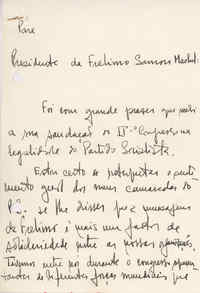 Para
Presidente da Frelimo Samora Machel
Foi com grande prazer que
a sua saudação ao IIº Congresso na
legalidade do Partido Socialista.
Estou certo de interpretar o senti-
mento geral dos meus camaradas do
P. se lhe disser que a mensagem
da Frelimo é mais um factor de
solidariedade entre os nossos
Tivemos entre nós durante o congresso
de diferentes forças mundiais que